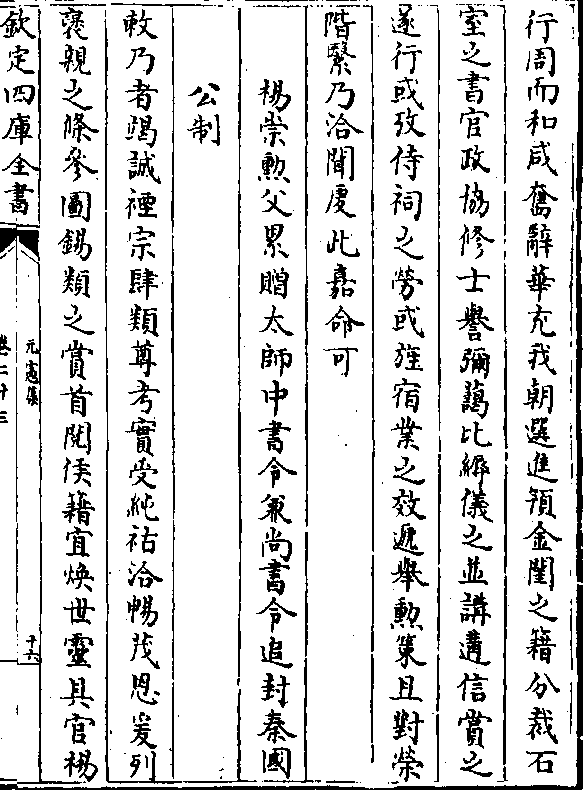 行周而和咸奮辭華充我朝選進預金閨之籍分裁石
室之書官政協修士譽彌藹比緟儀之並講遘信賞之
遂行或攷侍祠之勞或旌宿業之效遞舉勲䇿且對榮
階緊乃洽聞虔此嘉命可
楊崇勲父累贈太師中書令兼尚書令追封秦國
公制
敕乃者竭誠禋宗肆類尊考實受純祜洽暢茂恩爰列
褒親之條參圖錫類之賞首閱侯籍宜煥世靈具官楊
欽定四庫全書
元憲集
卷二十三
十六